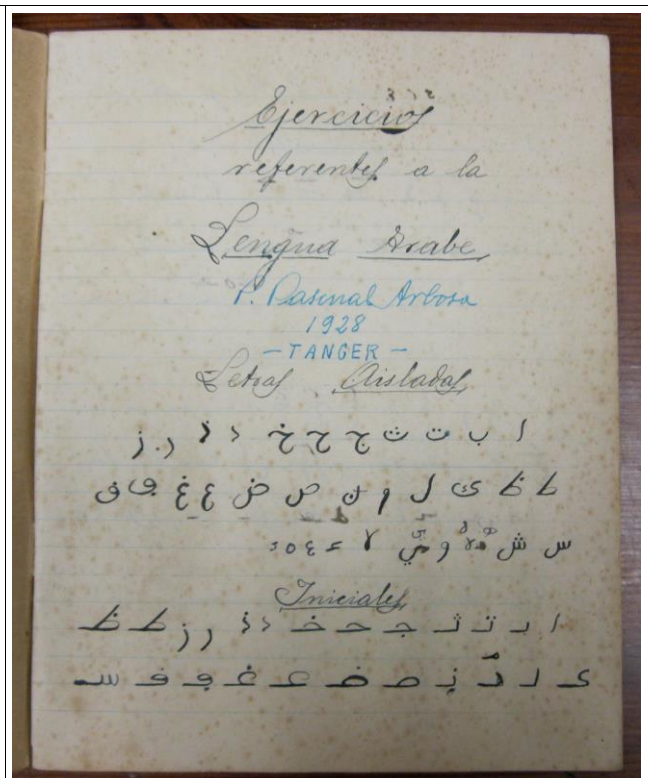 Ejercicios
referentes a la
Lengua Arabe
P. Pascual Arbosa
1928
- TANGER -
Letras Aisladas
ا ب ت ث ج ح خ د ذ ر ز
ط ظ ك ل م ن ص ض ع غ ڢ ڧ
س ش و ي لا ء
Iniciales
ا بـ تـ ثـ جـ حـ خـ د ذ ر ز طـ ظـ
كـ لـ مـ نـ صـ ضـ عـ غـ ڢـ ڧـ سـ